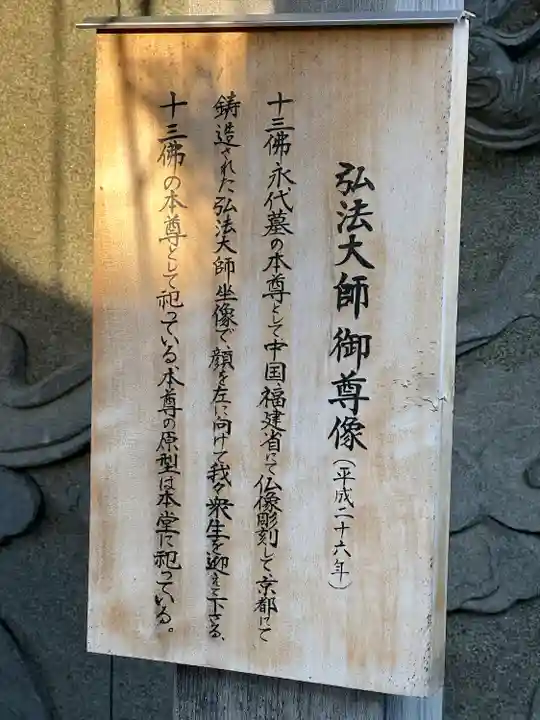 弘法大師御尊像(平成二十六年)
十三佛永代墓の本尊として中国、福建省にて仏像彫刻して、京都にて
鋳造された弘法大師坐像で、顔を左に向けて我々衆生を迎えて下さる、
十三佛の本尊として祀っている、本尊の原型は本堂に祀っている。